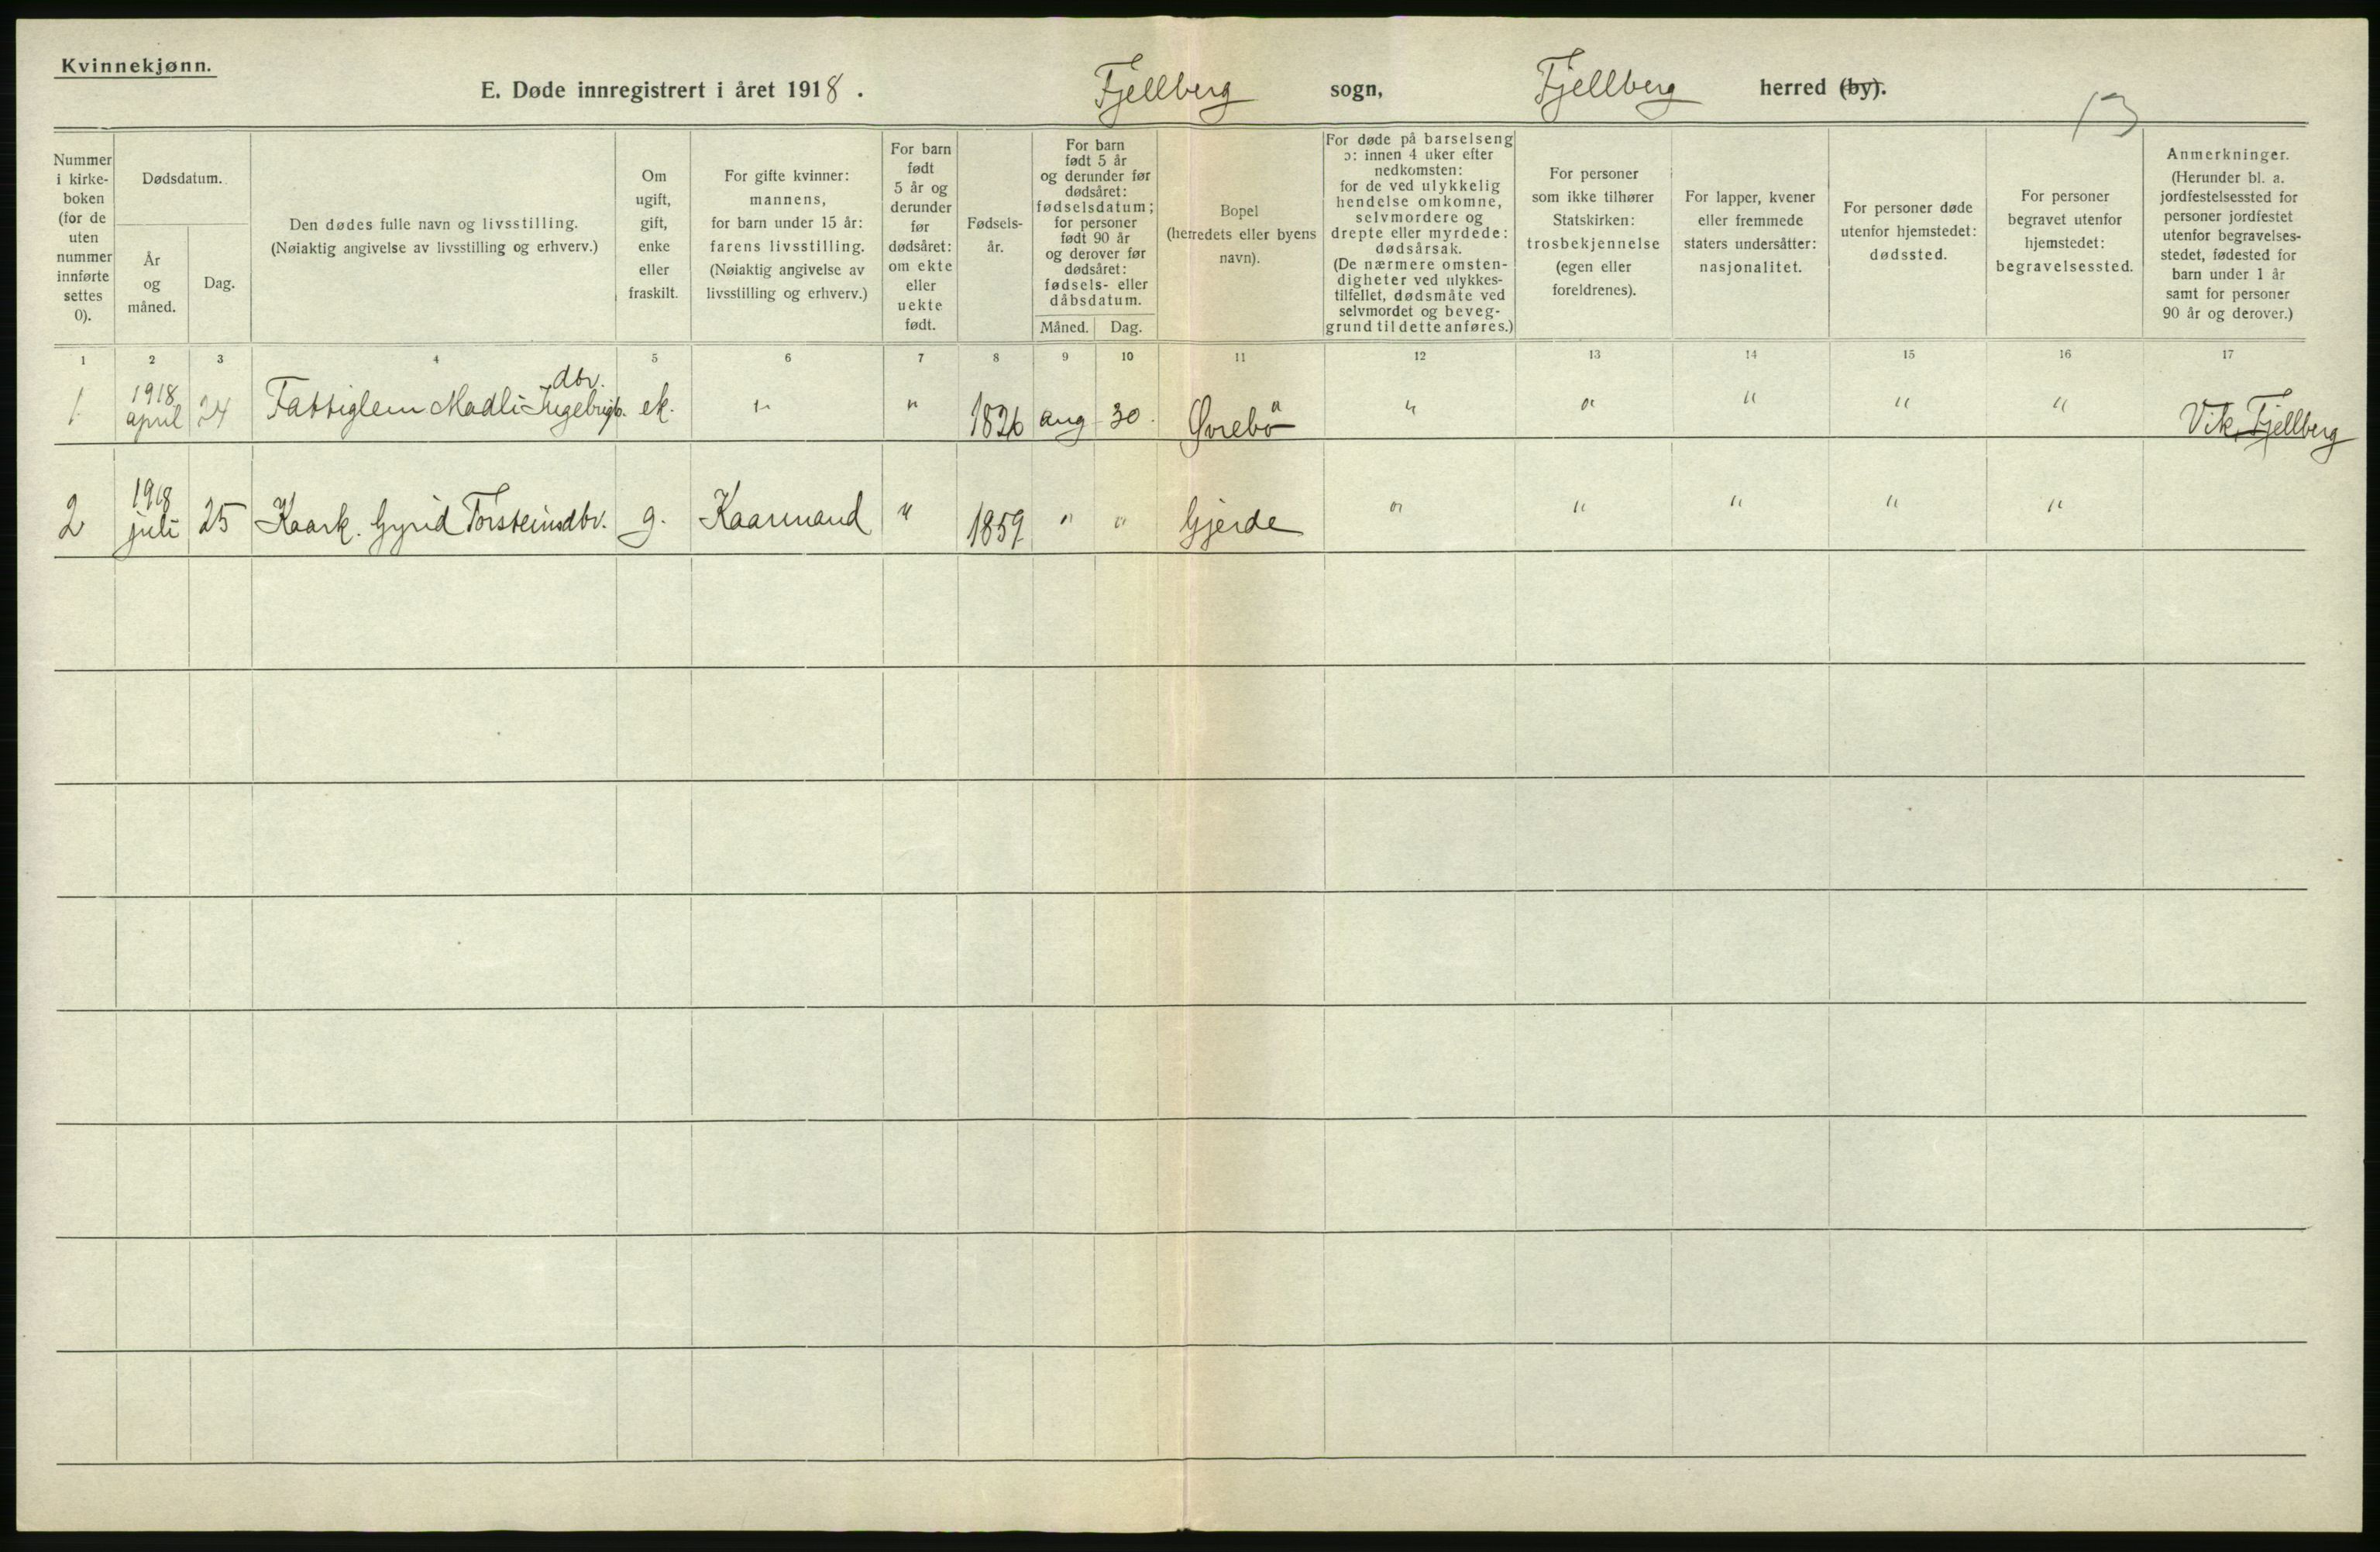 Kvinnekjønn.
E. Døde innregistrert i året 1918. Fjellberg sogn, Fjellberg herred (by).
13
Nummer
i kirke-
boken
(for de
uten
nummer
innførte
settes
0).
Dødsdatum.
År
og
måned.
Dag.
Den dødes fulle navn og livsstilling.
(Nøiaktig angivelse av livsstilling og erhverv.)
Om
ugift,
gift,
enke
eller
fraskilt.
For gifte kvinner:
mannens,
for barn under 15 år:
farens livsstilling.
(Nøiaktig angivelse av
livsstilling og erhverv.)
For barn
født
5 år og
derunder
før
dødsåret:
om ekte
eller
uekte
født.
Fødsels-
år.
For barn
født 5 år
og derunder før
dødsåret:
fødselsdatum;
for personer
født 90 år
og derover før
dødsåret:
fødsels- eller
dåbsdatum.
Måned. Dag.
Bopel
(herredets eller byens
navn).
For døde på barselseng
ɔ: innen 4 uker efter
nedkomsten:
for de ved ulykkelig
hendelse omkomne,
selvmordere og
drepte eller myrdede:
dødsårsak.
(De nærmere omsten-
digheter ved ulykkes-
tilfellet, dødsmåte ved
selvmordet og beveg-
grund til dette anføres.)
For personer
som ikke tilhører
Statskirken:
trosbekjennelse
(egen eller
foreldrenes).
For lapper, kvener
eller fremmede
staters undersåtter:
nasjonalitet.
For personer døde
utenfor hjemstedet:
dødssted.
For personer
begravet utenfor
hjemstedet:
begravelsessted.
Anmerkninger.
(Herunder bl. a.
jordfestelsessted for
personer jordfestet
utenfor begravelses-
stedet, fødested for
barn under 1 år
samt for personer
90 år og derover.)
1 2 3 4 5 6 7 8 9 10 11 12 13 14 15 16 17
1 1918 april 24 Fattiglem Madli Ingebrigts.dtr. ek. " " 1826 aug 30. Øvrebö " " " " " Vik, Fjellberg
2 1918 juli 25 Kaark. Gyrid Torsteinsdtr. g. Kaarmand " 1859 " " Gjerde " " " " "